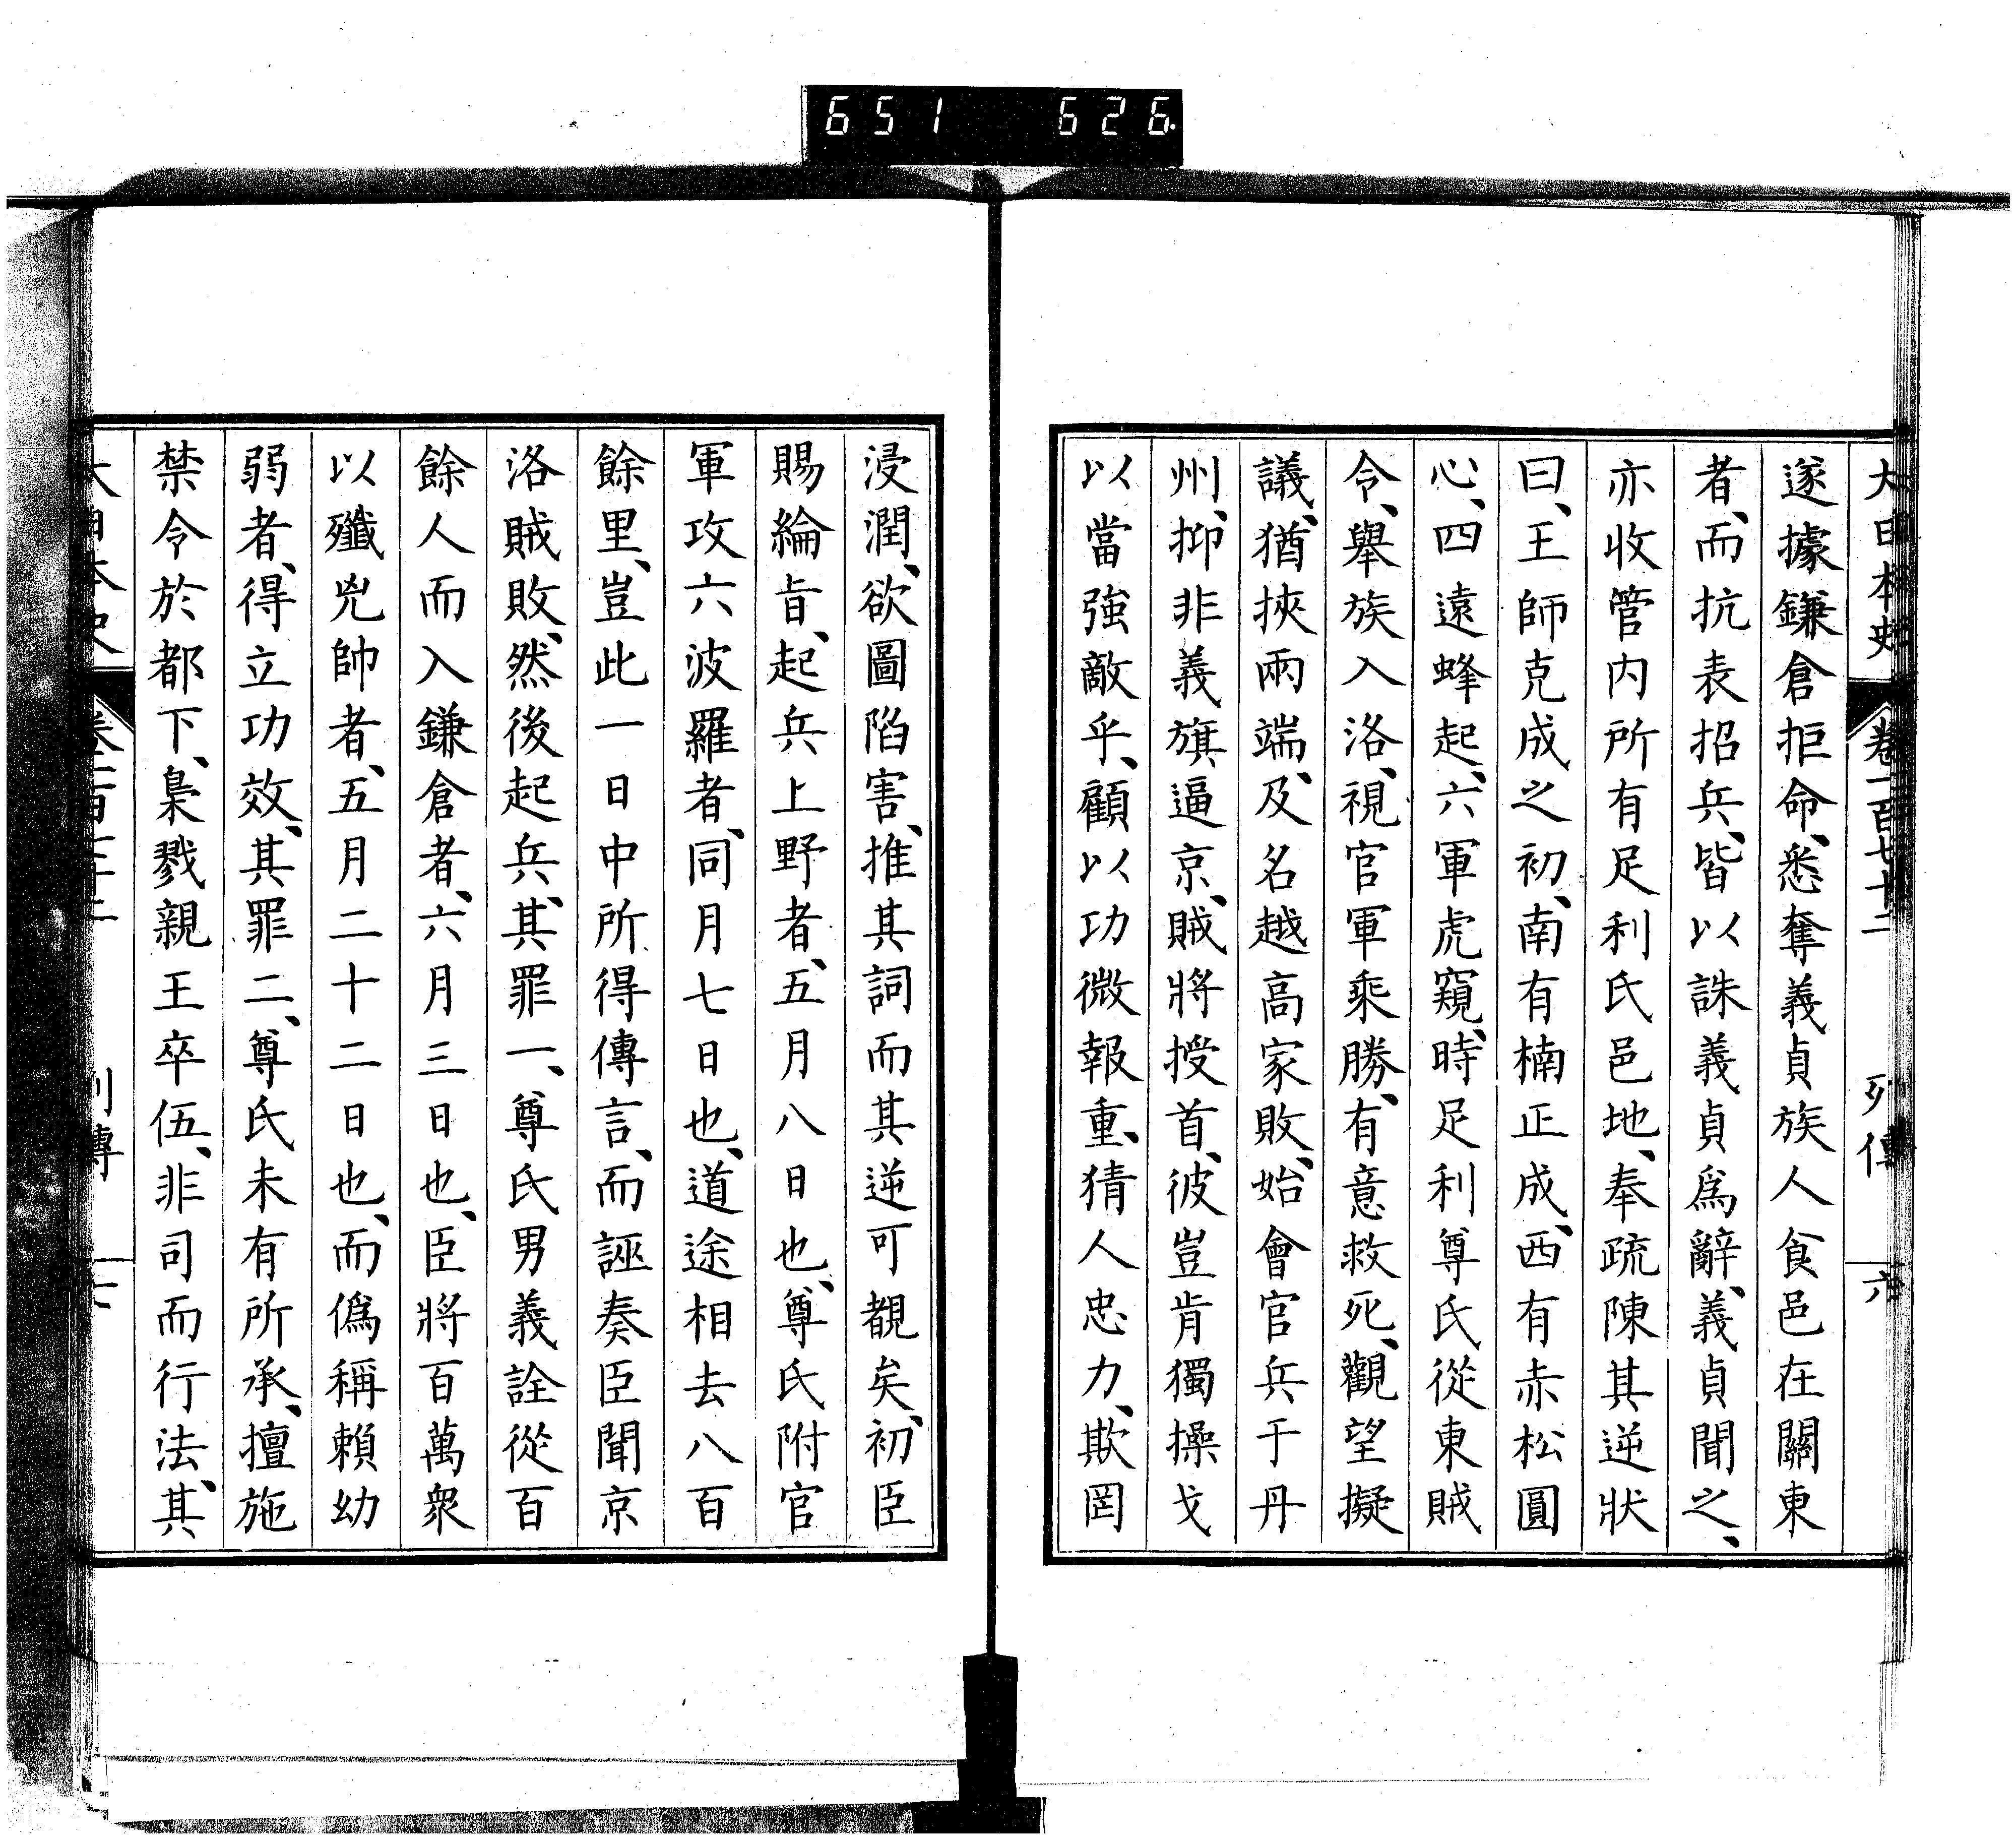 651 626
大日本史 卷一百七十二 列傳 六
遂據鎌倉拒命、悉奪義貞族人食邑在關東
者、而抗表招兵、皆以誅義貞爲辭、義貞聞之、
亦收管内所有足利氏邑地、奉疏陳其逆狀
曰、王師克成之初、南有楠正成、西有赤松圓
心、四遠蜂起、六軍虎窺、時足利尊氏從東賊
令、舉族入洛、視官軍乘勝、有意救死、觀望擬
議、猶挾兩端、及名越高家敗、始會官兵于丹
州、抑非義旗逼京、賊將授首、彼豈肯獨操戈
以當強敵乎、顧以功微報重、猜人忠力、欺罔
浸潤、欲圖陷害、推其詞而其逆可覩矣、初臣
賜綸旨、起兵上野者、五月八日也、尊氏附官
軍攻六波羅者、同月七日也、道途相去八百
餘里、豈此一日中所得傳言、而誣奏臣聞京
洛賊敗、然後起兵、其罪一、尊氏男義詮從百
餘人而入鎌倉者、六月三日也、臣將百萬衆
以殲兇帥者、五月二十二日也、而僞稱賴幼
弱者、得立功效、其罪二、尊氏未有所承、擅施
禁令於都下、梟戮親王卒伍、非司而行法、其
大日本史 列傳